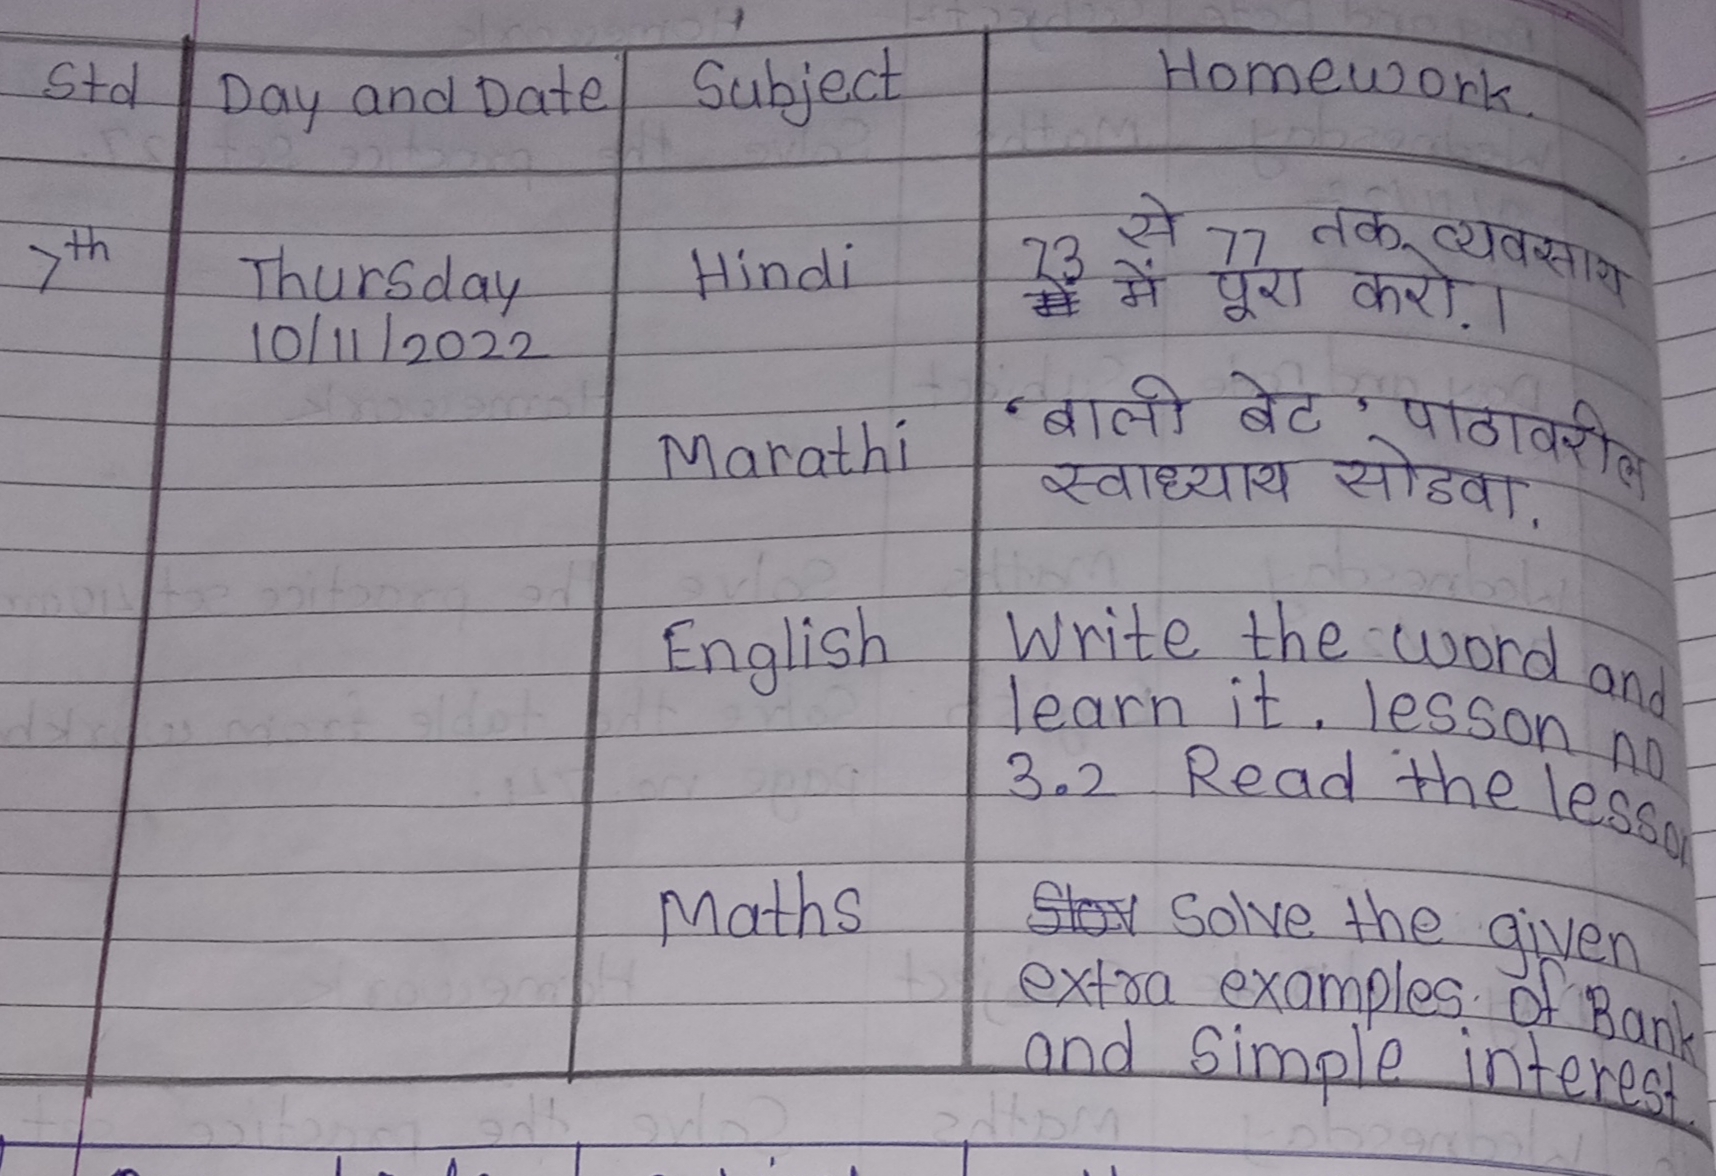 Std Day and Date Subject Homework.
7th Thursday Hindi 73 से 77 तक व्यवसाय
10/11/2022 में पूरा करो.।
Marathi ‘बाली बेट’ पाठावरील
स्वाध्याय सोडवा.
English Write the word and
learn it. lesson no
3.2 Read the lesson
Maths Solve the given
extra examples of Bank
and Simple interest.